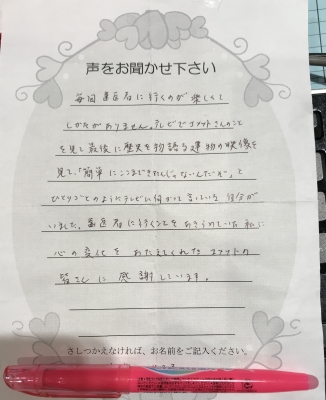 声をお聞かせ下さい
毎回歯医者に行くのが楽しくて
しかたがありません。テレビでコメットさんのこと
を見て最後に歴史を物語る建物の映像を
見て、「簡単にここまできたんじゃないんだぁ。」と
ひとりごとのようにテレビに向かって言っている自分が
いました。歯医者に行くことをあきらめていた私に
心の変化をあたえてくれたコメットの
皆さんに感謝しています。
さしつかえなければ、お名前をご記入ください。